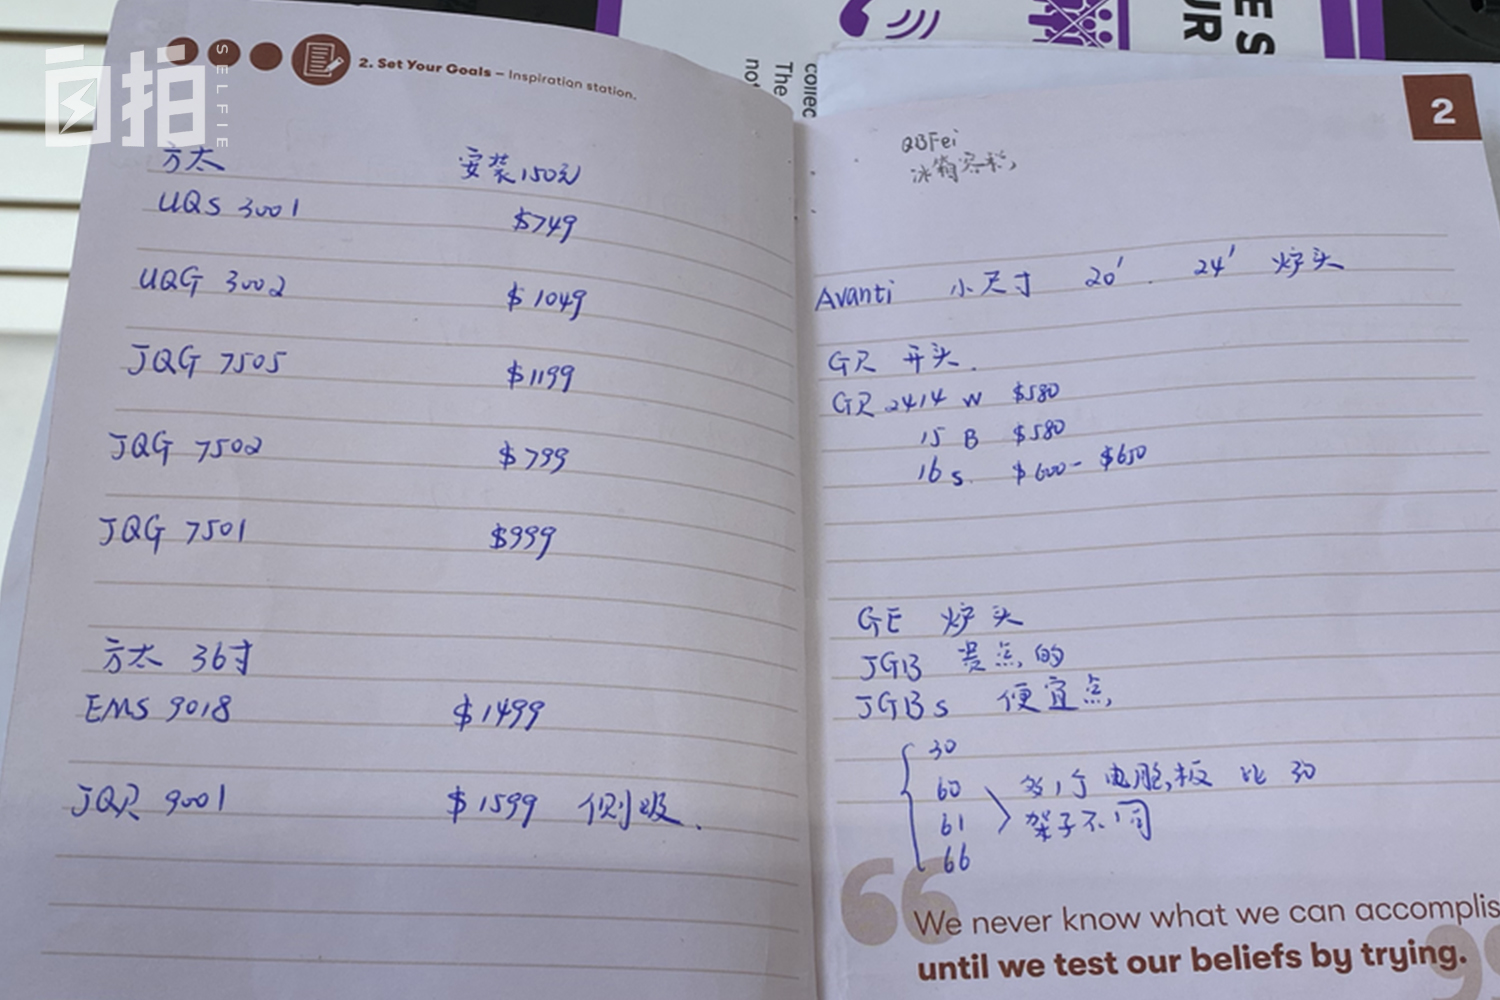 自拍
SELFIE
2. Set Your Goals – Inspiration station.
方太 安装150元
UQS 3001 $749
UQG 3002 $1049
JQG 7505 $1199
JQG 7502 $799
JQG 7501 $999
方太 36寸
EMS 9018 $1499
JQR 9001 $1599 侧吸.
collec
The
not
ES
UR
2
QBFei
冰箱
Avanti 小尺寸 20' . 24' 炉头
GR 开头.
GR 2414 W $580
15 B $580
16 S. $600- $650
GE 炉头
JGB 贵点的
JGBs 便宜点
30
60 多1个电脑板 比30
61 架子不同
66
We never know what we can accomplis
until we test our beliefs by trying.